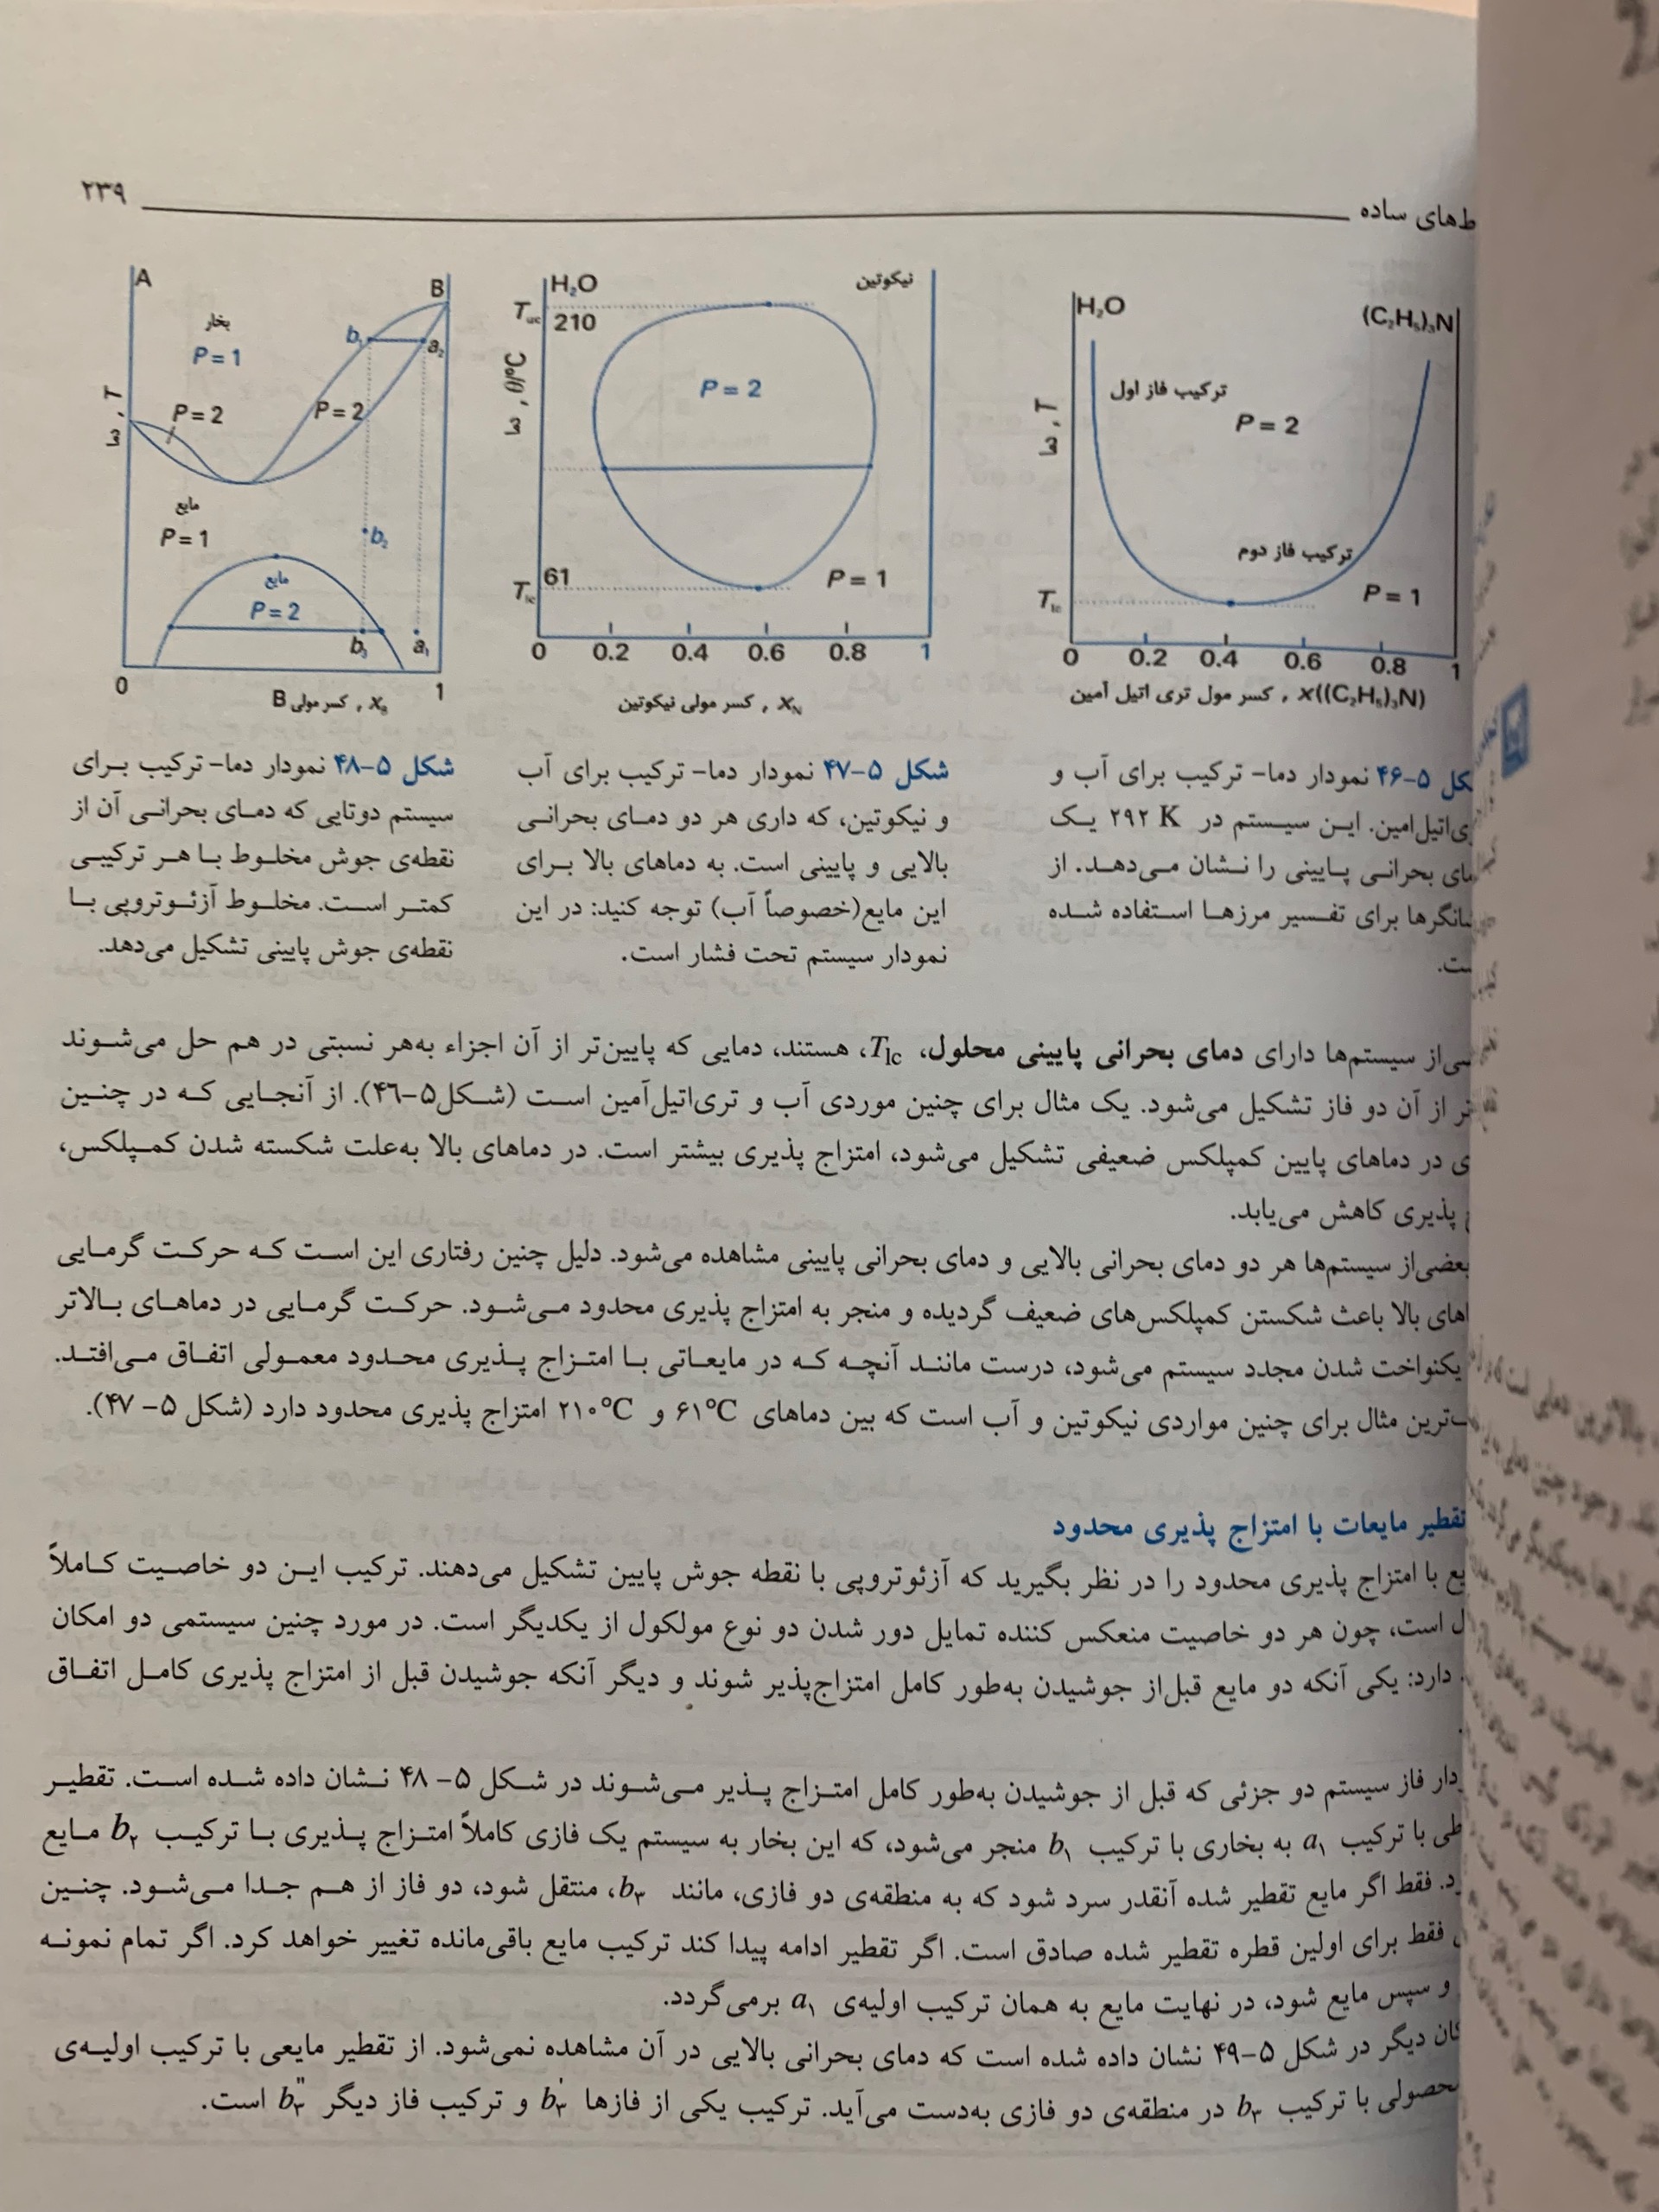 ۲۳۹
ط‌های ساده
H₂O
(C₂H₅)₃N
ترکیب فاز اول
P = 2
دما , T
ترکیب فاز دوم
P = 1
Tlc
0 0.2 0.4 0.6 0.8 1
x((C₂H₅)₃N) , کسر مول تری اتیل آمین
H₂O
نیکوتین
Tuc
210
دما , θ/°C
P = 2
61
Tlc
P = 1
0 0.2 0.4 0.6 0.8 1
xN , کسر مولی نیکوتین
A
B
بخار
P = 1
b₁
a₂
P = 2
P = 2
دما , T
مایع
P = 1
b₂
مایع
P = 2
b₃
a₁
0
1
xB , کسر مولی B
کل ۵-۴۶ نمودار دما- ترکیب برای آب و
ی‌اتیل‌امین. این سیستم در ۲۹۲ K یک
مای بحرانی پایینی را نشان می‌دهد. از
شانگرها برای تفسیر مرزها استفاده شده
ست.
شکل ۵-۴۷ نمودار دما- ترکیب برای آب
و نیکوتین، که داری هر دو دمای بحرانی
بالایی و پایینی است. به دماهای بالا برای
این مایع(خصوصاً آب) توجه کنید: در این
نمودار سیستم تحت فشار است.
شکل ۵-۴۸ نمودار دما- ترکیب برای
سیستم دوتایی که دمای بحرانی آن از
نقطه‌ی جوش مخلوط با هر ترکیبی
کمتر است. مخلوط آزئوتروپی با
نقطه‌ی جوش پایینی تشکیل می‌دهد.
سی‌از سیستم‌ها دارای دمای بحرانی پایینی محلول، Tlc، هستند، دمایی که پایین‌تر از آن اجزاء به‌هر نسبتی در هم حل می‌شوند
تر از آن دو فاز تشکیل می‌شود. یک مثال برای چنین موردی آب و تری‌اتیل‌آمین است (شکل۵-۴۶). از آنجایی که در چنین
ی در دماهای پایین کمپلکس ضعیفی تشکیل می‌شود، امتزاج پذیری بیشتر است. در دماهای بالا به‌علت شکسته شدن کمپلکس،
ج پذیری کاهش می‌یابد.
بعضی‌از سیستم‌ها هر دو دمای بحرانی بالایی و دمای بحرانی پایینی مشاهده می‌شود. دلیل چنین رفتاری این است که حرکت گرمایی
اهای بالا باعث شکستن کمپلکس‌های ضعیف گردیده و منجر به امتزاج پذیری محدود می‌شود. حرکت گرمایی در دماهای بالاتر
یکنواخت شدن مجدد سیستم می‌شود، درست مانند آنچه که در مایعاتی با امتزاج پذیری محدود معمولی اتفاق می‌افتد.
ب‌ترین مثال برای چنین مواردی نیکوتین و آب است که بین دماهای ۶۱°C و ۲۱۰°C امتزاج پذیری محدود دارد (شکل ۵- ۴۷).
تقطیر مایعات با امتزاج پذیری محدود
یع با امتزاج پذیری محدود را در نظر بگیرید که آزئوتروپی با نقطه جوش پایین تشکیل می‌دهند. ترکیب این دو خاصیت کاملاً
ل است، چون هر دو خاصیت منعکس کننده تمایل دور شدن دو نوع مولکول از یکدیگر است. در مورد چنین سیستمی دو امکان
دارد: یکی آنکه دو مایع قبل‌از جوشیدن به‌طور کامل امتزاج‌پذیر شوند و دیگر آنکه جوشیدن قبل از امتزاج پذیری کامل اتفاق
دار فاز سیستم دو جزئی که قبل از جوشیدن به‌طور کامل امتزاج پذیر می‌شوند در شکل ۵- ۴۸ نشان داده شده است. تقطیر
طی با ترکیب a۱ به بخاری با ترکیب b۱ منجر می‌شود، که این بخار به سیستم یک فازی کاملاً امتزاج پذیری با ترکیب b۲ مایع
رد. فقط اگر مایع تقطیر شده آنقدر سرد شود که به منطقه‌ی دو فازی، مانند b۳، منتقل شود، دو فاز از هم جدا می‌شود. چنین
فقط برای اولین قطره تقطیر شده صادق است. اگر تقطیر ادامه پیدا کند ترکیب مایع باقی‌مانده تغییر خواهد کرد. اگر تمام نمونه
و سپس مایع شود، در نهایت مایع به همان ترکیب اولیه‌ی a۱ برمی‌گردد.
کان دیگر در شکل ۵-۴۹ نشان داده شده است که دمای بحرانی بالایی در آن مشاهده نمی‌شود. از تقطیر مایعی با ترکیب اولیه‌ی
محصولی با ترکیب b۳ در منطقه‌ی دو فازی به‌دست می‌آید. ترکیب یکی از فازها b′۳ و ترکیب فاز دیگر b″۳ است.